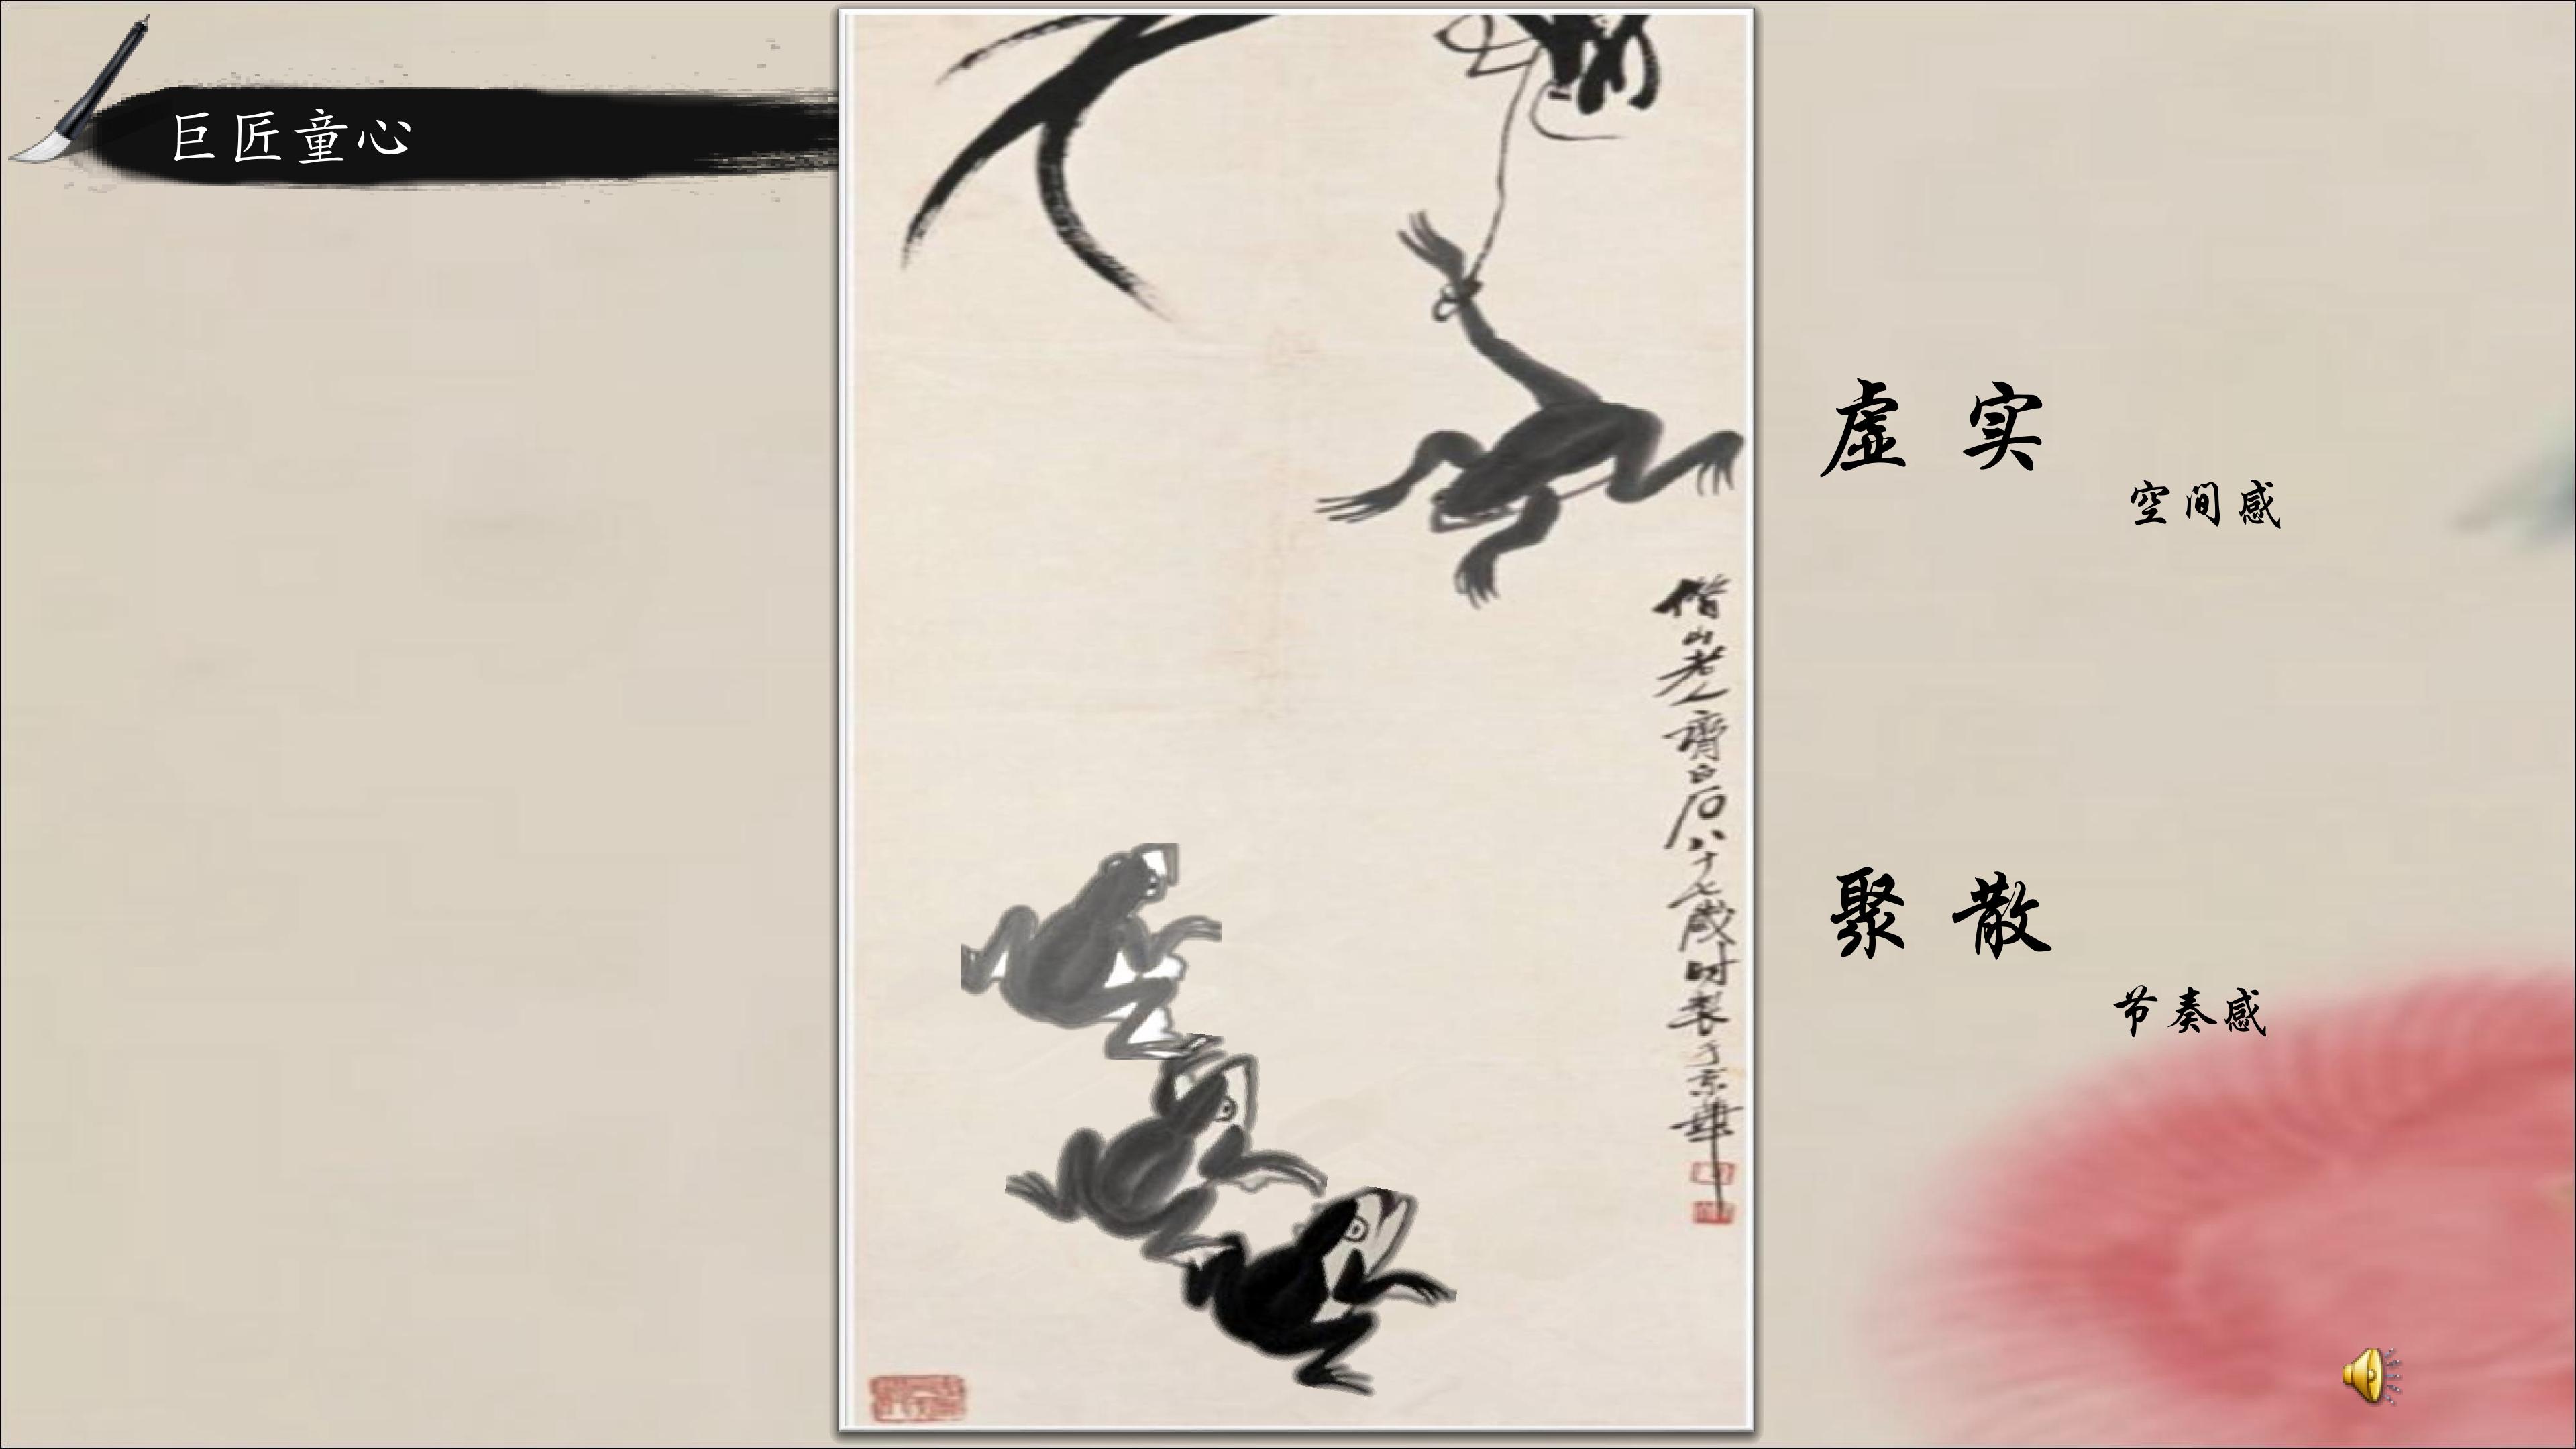 巨匠童心
虚 实
空间感
聚 散
节奏感
老人齊白石八十七歲時製于京華